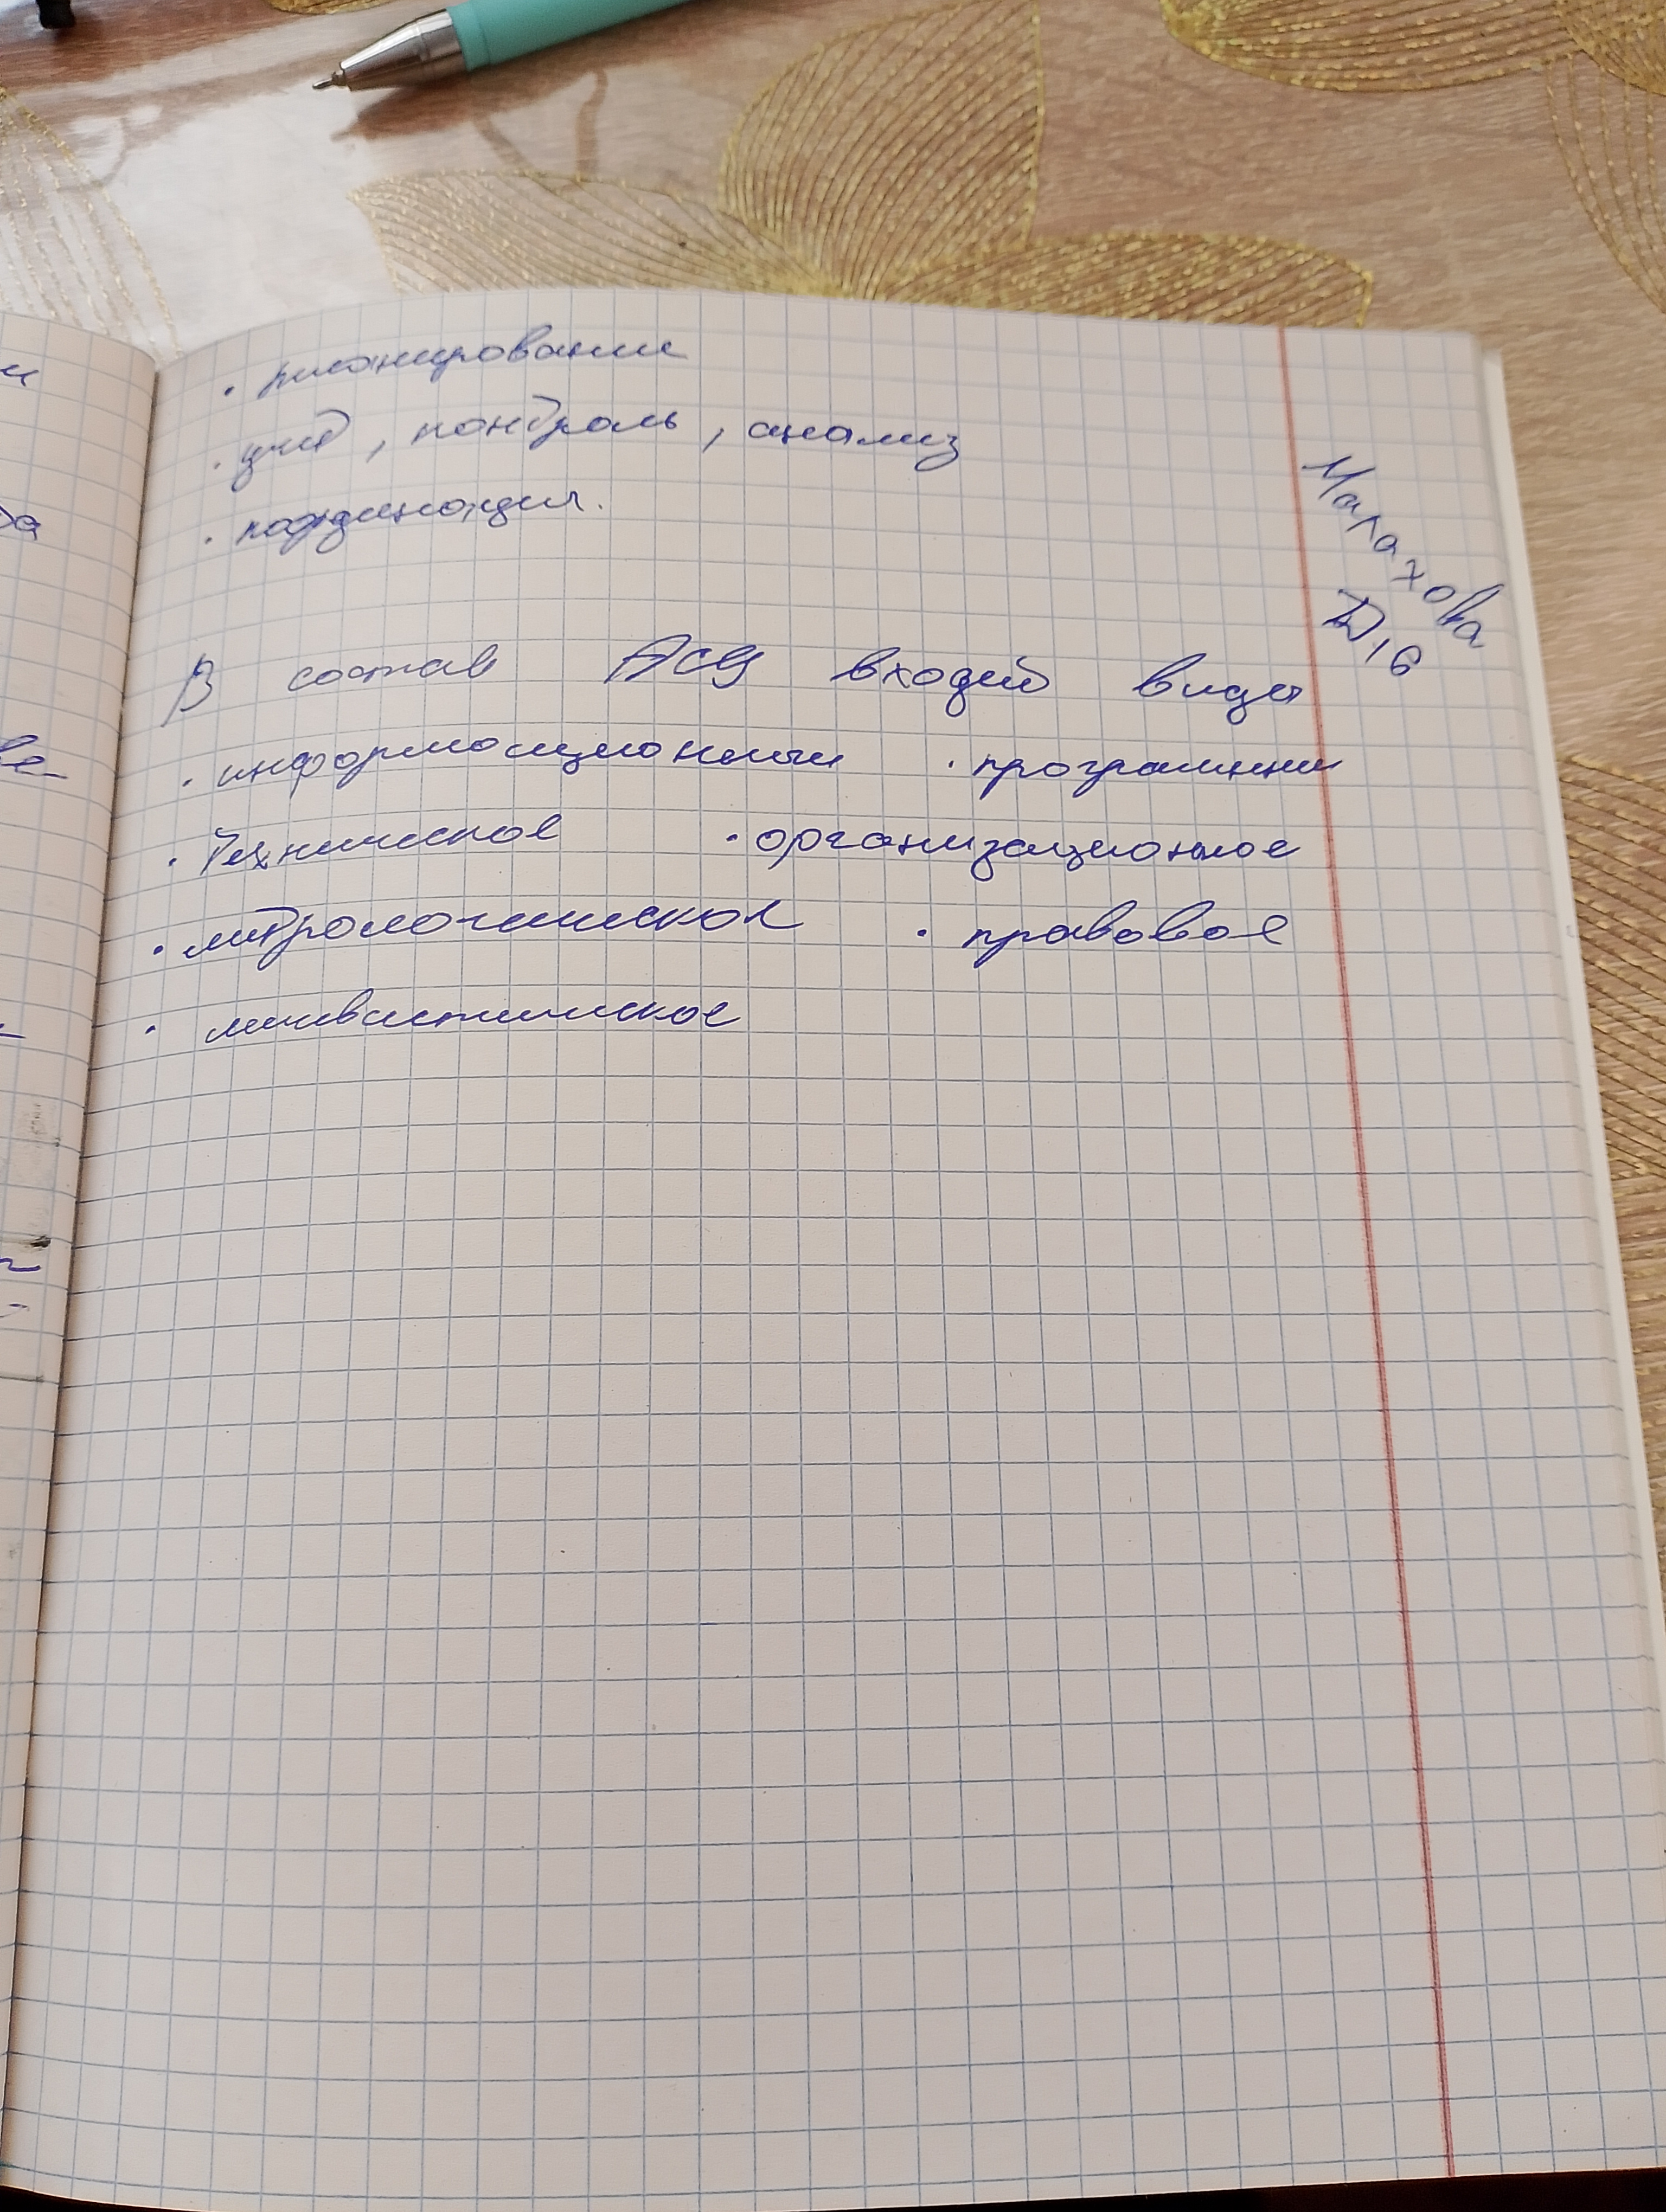 • планирование
• учёт, контроль, анализ
• координация.
Малахова
Д16
В состав АСУ входит виды
• информационный • программн
• техническое • организационное
• метрологическое • правовое
• лингвистическое